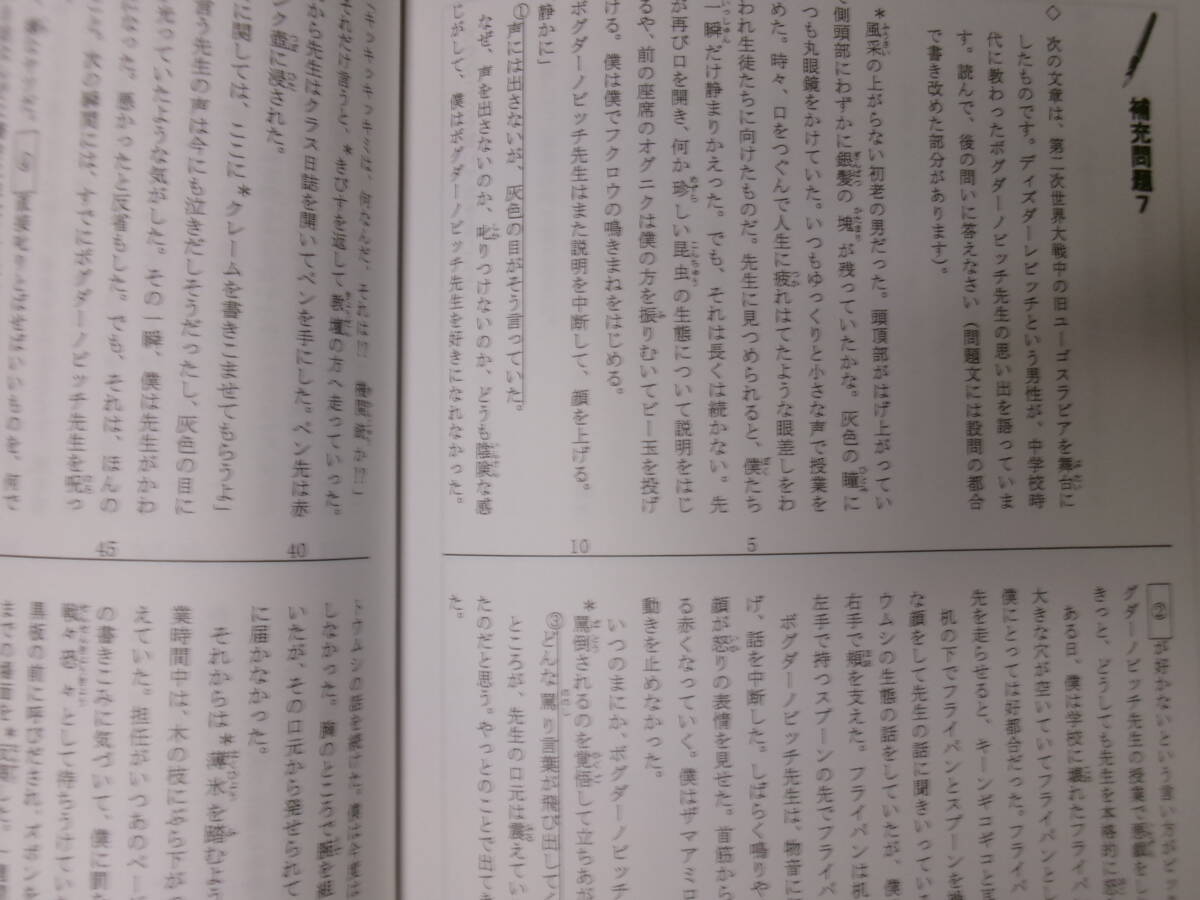 補充問題7
◇ 次の文章は、第二次世界大戦中の旧ユーゴスラビアを舞台に
したものです。ディズダーレビッチという男性が、中学校時
代に教わったボグダーノビッチ先生の思い出を語っていま
す。読んで、後の問いに答えなさい（問題文には設問の都合
で書き改めた部分があります）。
*風采の上がらない初老の男だった。頭頂部がはげ上がってい
て側頭部にわずかに銀髪の塊が残っていたかな。灰色の瞳に
いつも丸眼鏡をかけていた。いつもゆっくりと小さな声で授業を
めた。時々、口をつぐんで人生に疲れはてたような眼差しをわ
われ生徒たちに向けたものだ。先生に見つめられると、僕たち
一瞬だけ静まりかえった。でも、それは長くは続かない。先
が再び口を開き、何か珍しい昆虫の生態について説明をはじ
るや、前の座席のオグニクは僕の方を振りむいてビー玉を投げ
ける。僕は僕でフクロウの鳴きまねをはじめる。
ボグダーノビッチ先生はまた説明を中断して、顔を上げる。
静かに」
①声には出さないが、灰色の目がそう言っていた。
なぜ、声を出さないのか、叱りつけないのか、どうも陰険な感
じがして、僕はボグダーノビッチ先生を好きになれなかった。
5
10
② が好かないという言い方が
グダーノビッチ先生の授業で悪戯をし
きっと、どうしても先生を本格的に
ある日、僕は学校に壊れたフライパ
大きな穴が空いていてフライパンとし
僕にとっては好都合だった。フライパ
先を走らせると、キーンギコギコと
机の下でフライパンとスプーンを
な顔をして先生の話に聞きいってい
ウムシの生態の話をしていたが、僕
右手で頬を支えた。フライパンは机
左手で持つスプーンの先でフライパ
ボグダーノビッチ先生は、物音に
げ、話を中断した。しばらく鳴りや
顔が怒りの表情を見せた。首筋から
る赤くなっていく。僕はザマアミロ
動きを止めなかった。
いつのまにか、ボグダーノビッチ
*罵倒されるのを覚悟して立ちあが
③どんな罵り言葉が飛び出して
ところが、先生の口元は震えてい
たのだと思う。やっとのことで出てき
た。
キッキッキッキミは、何なんだ、それは!? 機関銃か!?」
それだけ言うと、*きびすを返して教壇の方へ走っていった。
から先生はクラス日誌を開いてペンを手にした。ペン先は赤
ンク壺に浸された。
に関しては、ここに*クレームを書きこませてもらうよ」
言う先生の声は今にも泣きだしそうだったし、灰色の目に
光っていたような気がした。その一瞬、僕は先生がかわ
なった。悪かったと反省もした。でも、それは、ほんの
次の瞬間には、すでにボグダーノビッチ先生を呪っ
40
45
トウムシの話を続けた。僕は
しなかった。胸のところで腕を組
いたが、その口元から発せられて
に届かなかった。
それからは*薄氷を踏むよう
業時間中は、木の枝にぶら下が
えていた。担任がいつあのペー
の書きこみに気づいて、僕に罰
戦々恐々として待ちうけてい
黒板の前に呼びだされ、ズボン